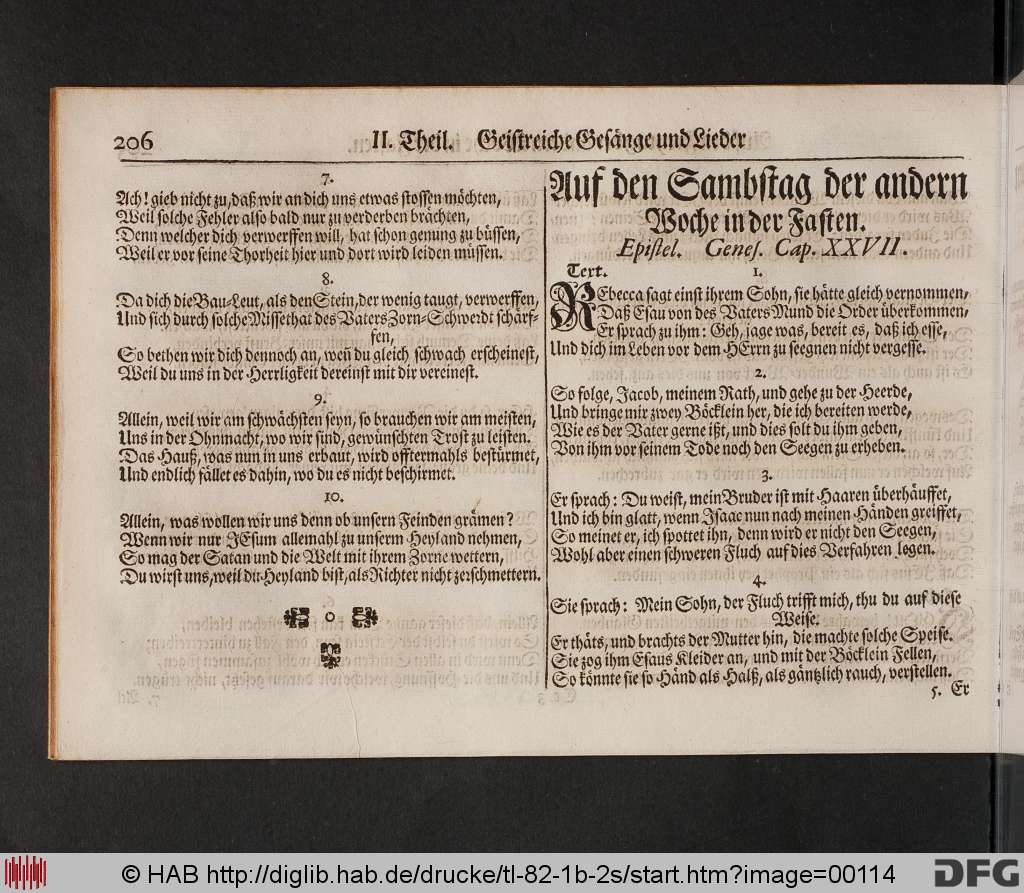 206 II. Theil. Geistreiche Gesänge und Lieder
7.
Ach! gieb nicht zu, daß wir an dich uns etwas stossen möchten,
Weil solche Fehler also bald nur zu verderben brächten,
Denn welcher dich verwerffen will, hat schon genung zu büssen,
Weil er vor seine Thorheit hier und dort wird leiden müssen.
8.
Da dich die Bau-Leut, als den Stein, der wenig taugt, verwerffen,
Und sich durch solche Missethat des Vaters Zorn-Schwerdt schärf-
fen,
So bethen wir dich dennoch an, weñ du gleich schwach erscheinest,
Weil du uns in der Herrligkeit dereinst mit dir vereinest.
9.
Allein, weil wir am schwächsten seyn, so brauchen wir am meisten,
Uns in der Ohnmacht, wo wir sind, gewünschten Trost zu leisten.
Das Hauß, was nun in uns erbaut, wird offtermahls bestürmet,
Und endlich fället es dahin, wo du es nicht beschirmet.
10.
Allein, was wollen wir uns denn ob unsern Feinden grämen?
Wenn wir nur JEsum allemahl zu unserm Heyland nehmen,
So mag der Satan und die Welt mit ihrem Zorne wettern,
Du wirst uns, weil du Heyland bist, als Richter nicht zerschmettern.
Auf den Sambstag der andern
Woche in der Fasten.
Epistel. Genes. Cap. XXVII.
Text. 1.
REbecca sagt einst ihrem Sohn, sie hätte gleich vernommen,
Daß Esau von des Vaters Mund die Order überkommen,
Er sprach zu ihm: Geh, jage was, bereit es, daß ich esse,
Und dich im Leben vor dem HErrn zu seegnen nicht vergesse.
2.
So folge, Jacob, meinem Rath, und gehe zu der Heerde,
Und bringe mir zwey Böcklein her, die ich bereiten werde,
Wie es der Vater gerne ißt, und dies solt du ihm geben,
Von ihm vor seinem Tode noch den Seegen zu erheben.
3.
Er sprach: Du weist, mein Bruder ist mit Haaren überhäuffet,
Und ich bin glatt, wenn Isaac nun nach meinen Händen greiffet,
So meinet er, ich spottet ihn, denn wird er nicht den Seegen,
Wohl aber einen schweren Fluch auf dies Verfahren legen.
4.
Sie sprach: Mein Sohn, der Fluch trifft mich, thu du auf diese
Weise.
Er thäts, und brachts der Mutter hin, die machte solche Speise.
Sie zog ihm Esaus Kleider an, und mit der Böcklein Fellen,
So könnte sie so Händ als Halß, als gäntzlich rauch, verstellen.
5. Er
© HAB http://diglib.hab.de/drucke/tl-82-1b-2s/start.htm?image=00114
DFG